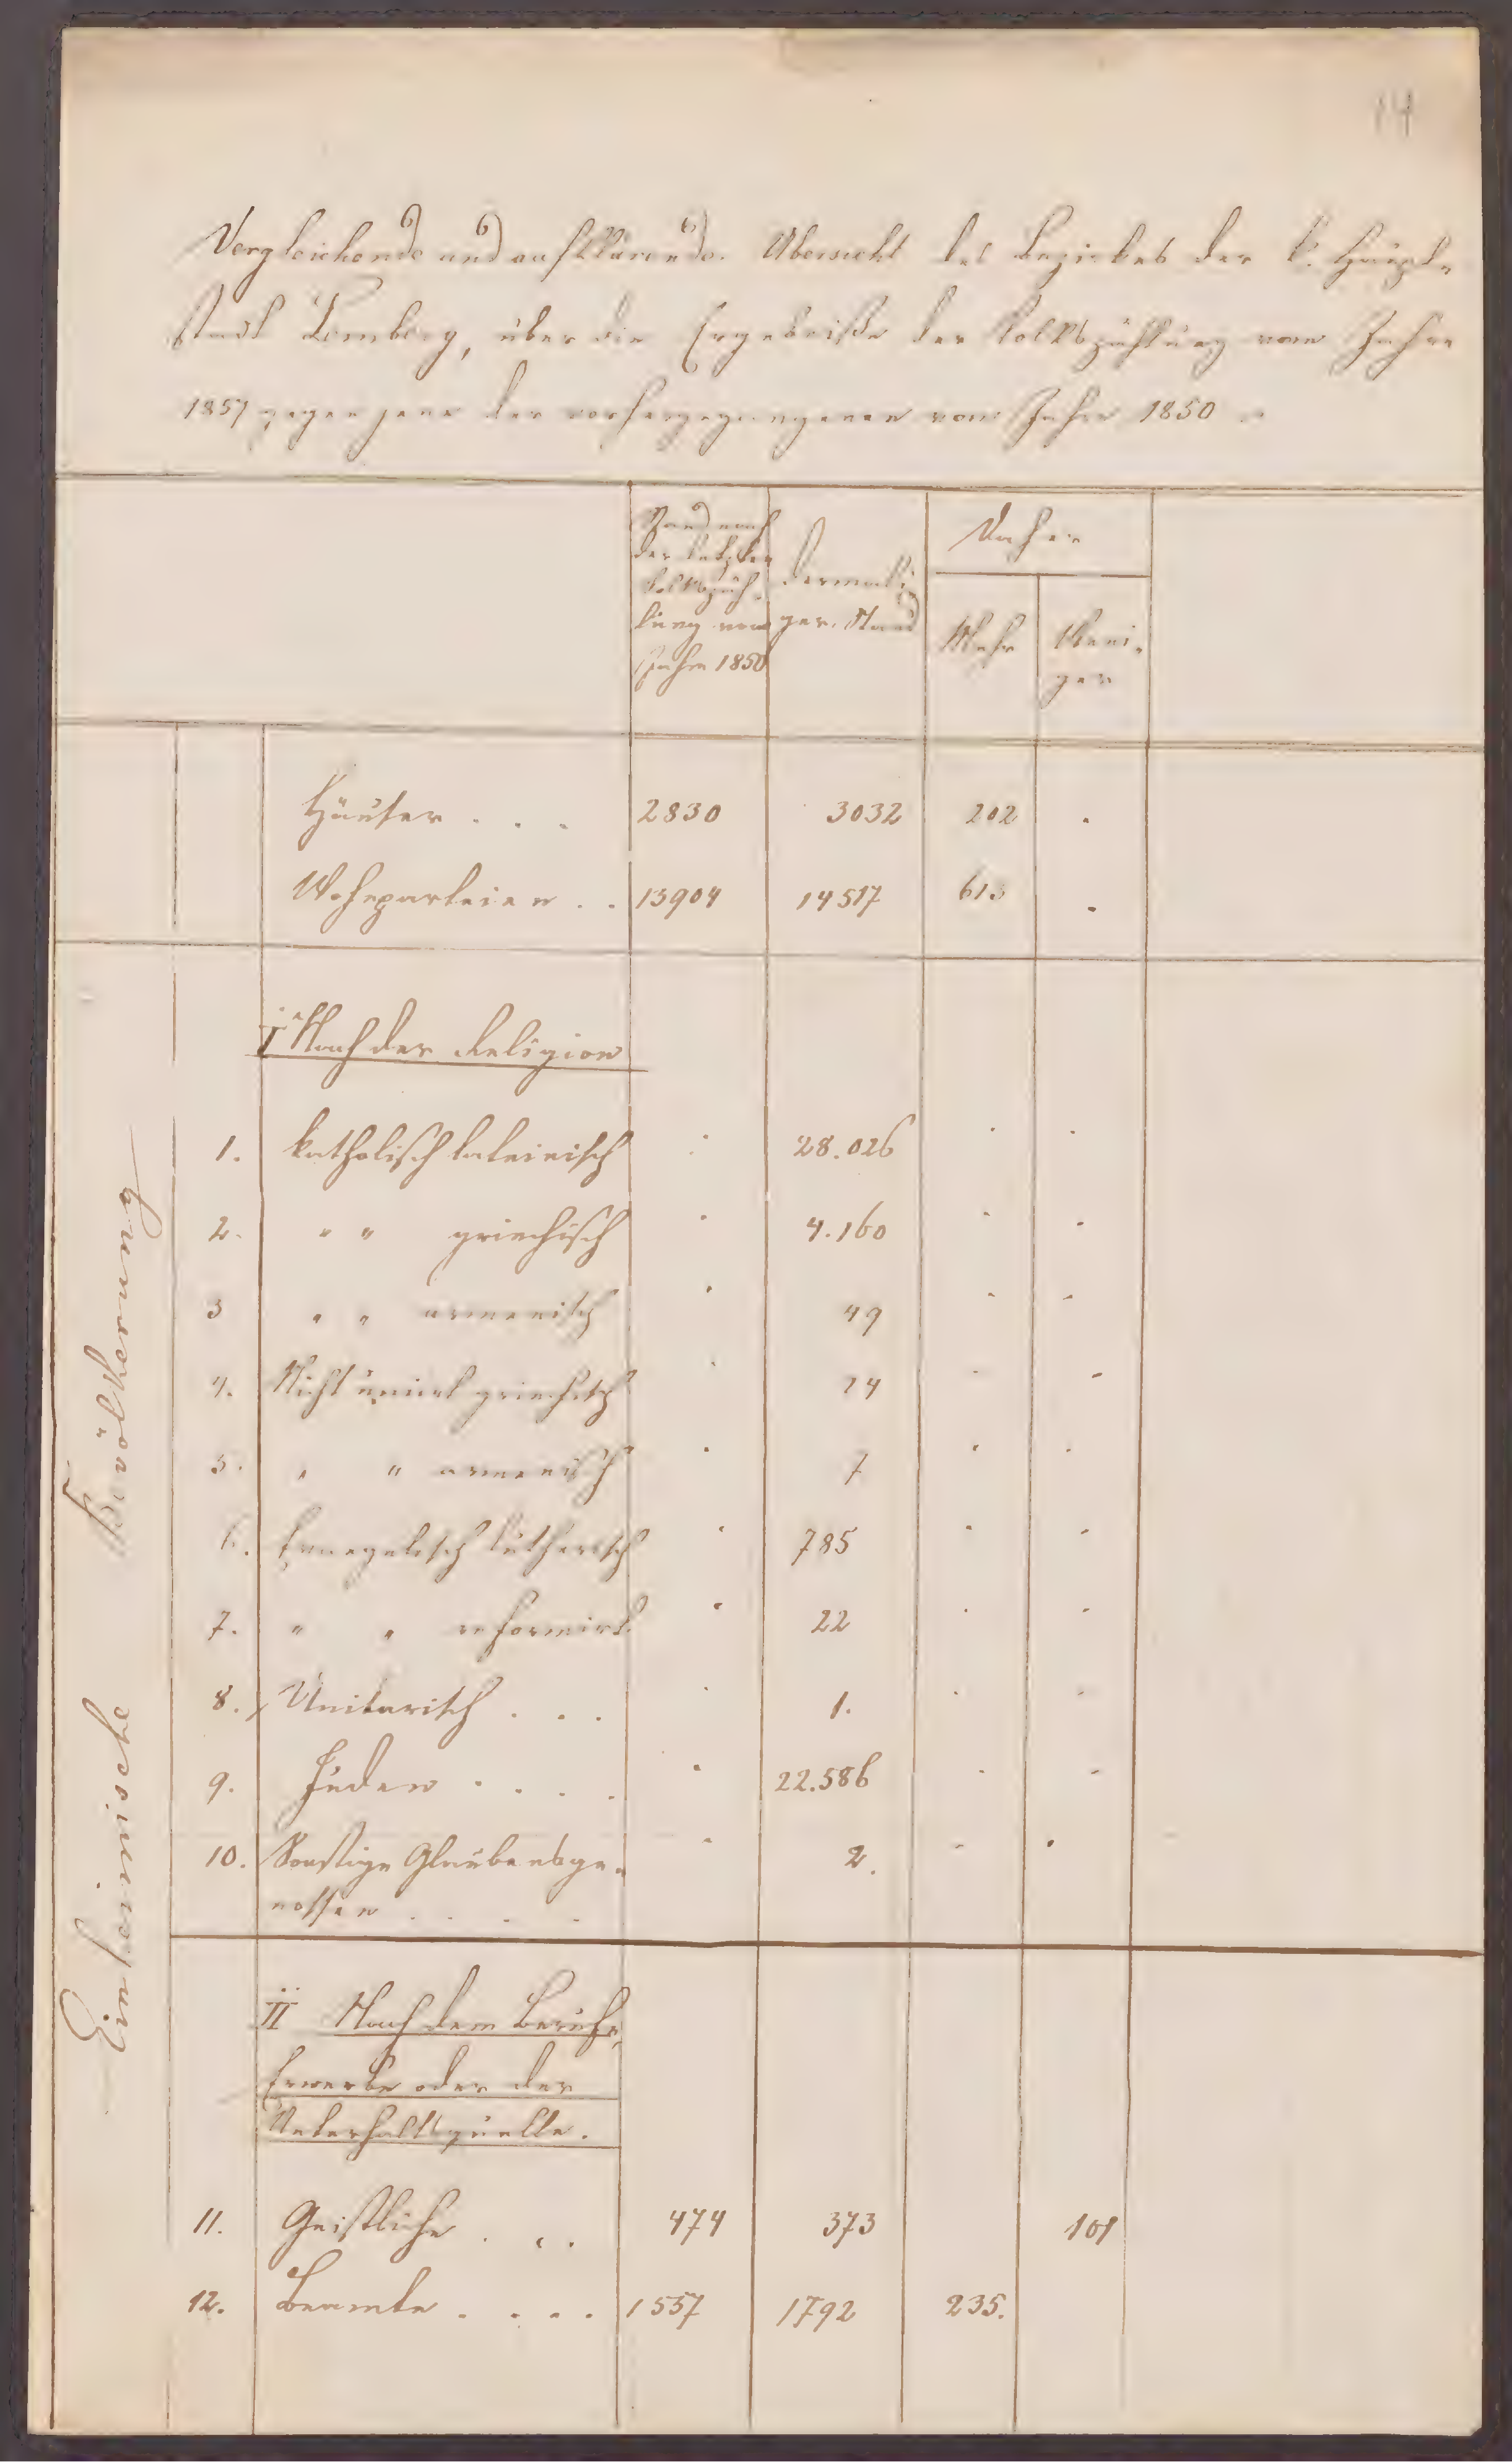 14
Vergleichende und aufklärende Übersicht des Bezirkes der k. Haupt-
stadt Lemberg, über die Ergebniße der Volkszählung vom Jahre
1857 gegen jene der vorhergegangenen vom Jahre 1850
Stand nach
der letzten
Volkszäh-
lung vom
Jahre 1850
Dermali-
ger Stand
Daher
Mehr
Weni-
ger
Häuser . . . 2830 3032 202 .
Wohnparteien . . 13904 14517 613 .
Einheimische Bevölkerung
I Nach der Religion
1. katholisch lateinisch 28.026
2. " " griechisch 4.160
3 " " armenisch 49
4. Nicht unirt griechisch 24
5. " " armenisch 7
6. Evangelisch lutherisch 785
7. " " reformirt 22
8. Unitarisch . . . 1.
9. Juden . . . . 22.586
10. Sonstige Glaubensge- 2.
nossen . . . .
II Nach dem Berufe,
Erwerbe oder der
Unterhaltsquelle.
11. Geistliche . . . 474 373 101
12. Beamte . . . . 1557 1792 235.